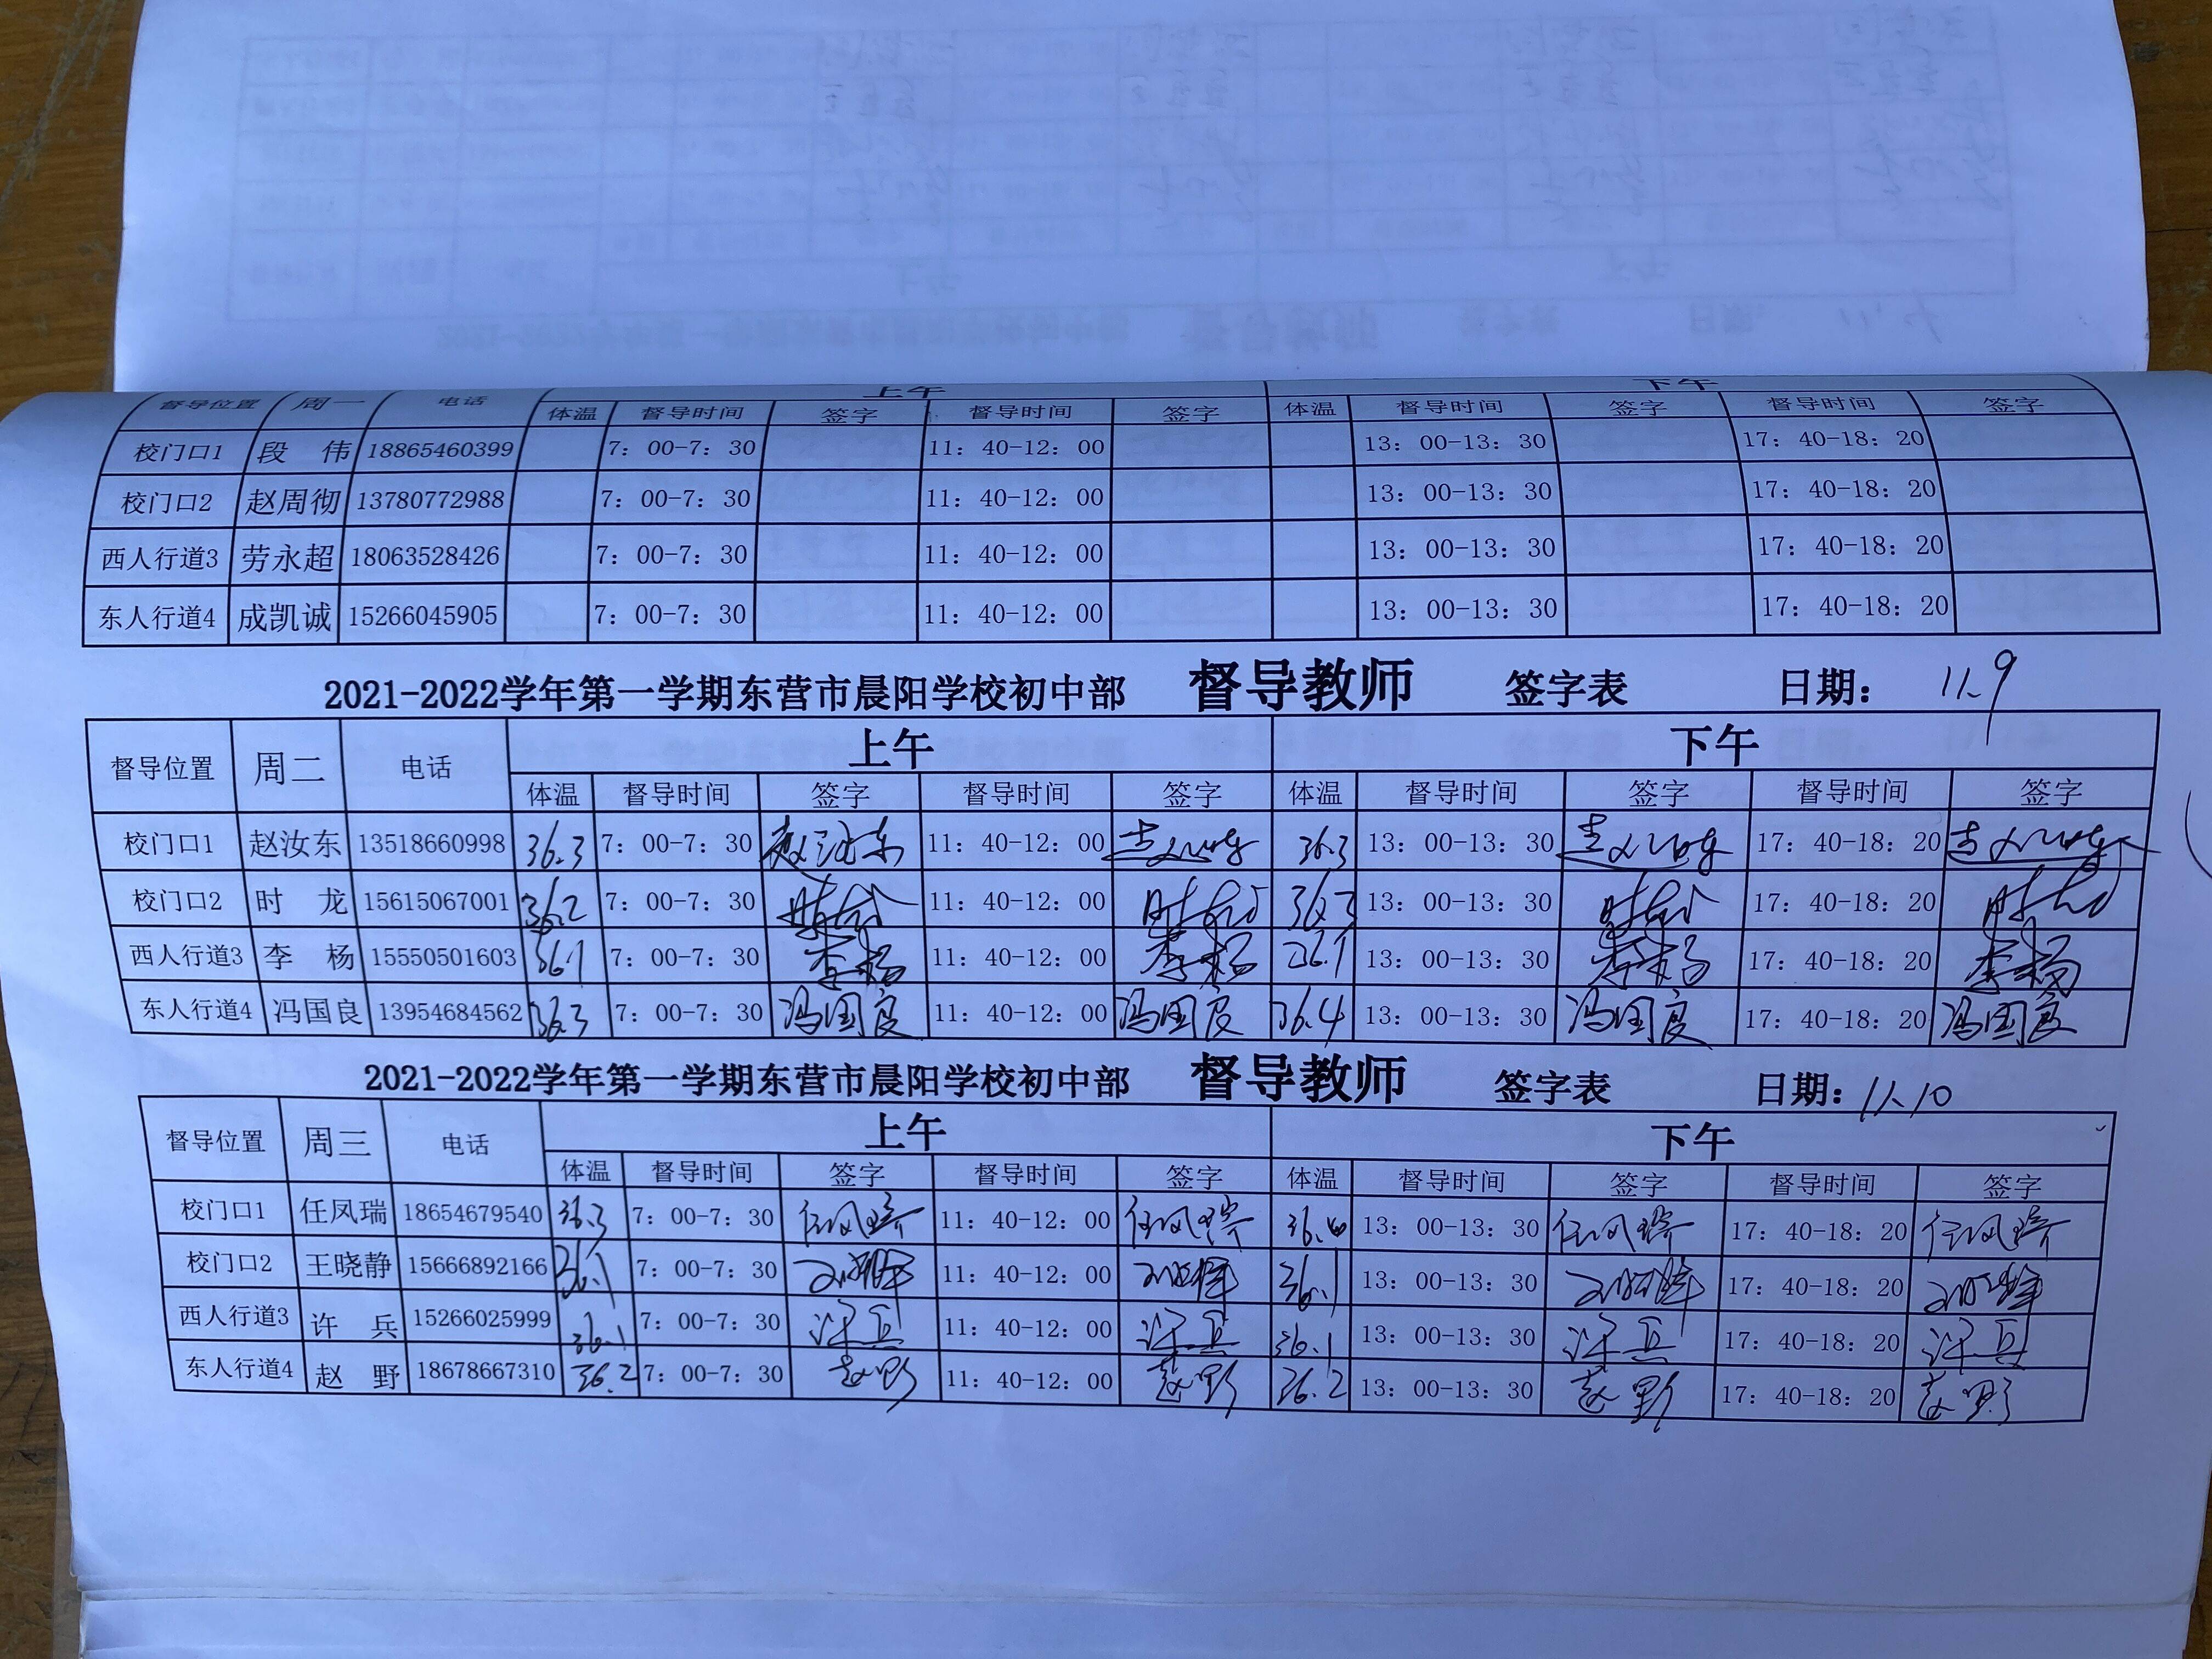 上午 下午
督导位置 周一 电话 体温 督导时间 签字 督导时间 签字 体温 督导时间 签字 督导时间 签字
校门口1 段 伟 18865460399 7：00-7：30 11：40-12：00 13：00-13：30 17：40-18：20
校门口2 赵周彻 13780772988 7：00-7：30 11：40-12：00 13：00-13：30 17：40-18：20
西人行道3 劳永超 18063528426 7：00-7：30 11：40-12：00 13：00-13：30 17：40-18：20
东人行道4 成凯诚 15266045905 7：00-7：30 11：40-12：00 13：00-13：30 17：40-18：20
2021-2022学年第一学期东营市晨阳学校初中部 督导教师 签字表 日期： 11.9
督导位置 周二 电话 上午 下午
体温 督导时间 签字 督导时间 签字 体温 督导时间 签字 督导时间 签字
校门口1 赵汝东 13518660998 36.3 7：00-7：30 赵汝东 11：40-12：00 赵汝东 36.3 13：00-13：30 赵汝东 17：40-18：20 赵汝东
校门口2 时 龙 15615067001 36.2 7：00-7：30 时龙 11：40-12：00 时龙 36.3 13：00-13：30 时龙 17：40-18：20 时龙
西人行道3 李 杨 15550501603 36.1 7：00-7：30 李杨 11：40-12：00 李杨 36.1 13：00-13：30 李杨 17：40-18：20 李杨
东人行道4 冯国良 13954684562 36.3 7：00-7：30 冯国良 11：40-12：00 冯国良 36.4 13：00-13：30 冯国良 17：40-18：20 冯国良
2021-2022学年第一学期东营市晨阳学校初中部 督导教师 签字表 日期： 11.10
督导位置 周三 电话 上午 下午
体温 督导时间 签字 督导时间 签字 体温 督导时间 签字 督导时间 签字
校门口1 任凤瑞 18654679540 36.3 7：00-7：30 任凤瑞 11：40-12：00 任凤瑞 36.4 13：00-13：30 任凤瑞 17：40-18：20 任凤瑞
校门口2 王晓静 15666892166 36.1 7：00-7：30 11：40-12：00 36.1 13：00-13：30 17：40-18：20
西人行道3 许 兵 15266025999 36.1 7：00-7：30 许兵 11：40-12：00 许兵 36.1 13：00-13：30 许兵 17：40-18：20 许兵
东人行道4 赵 野 18678667310 36.2 7：00-7：30 赵野 11：40-12：00 赵野 36.2 13：00-13：30 赵野 17：40-18：20 赵野